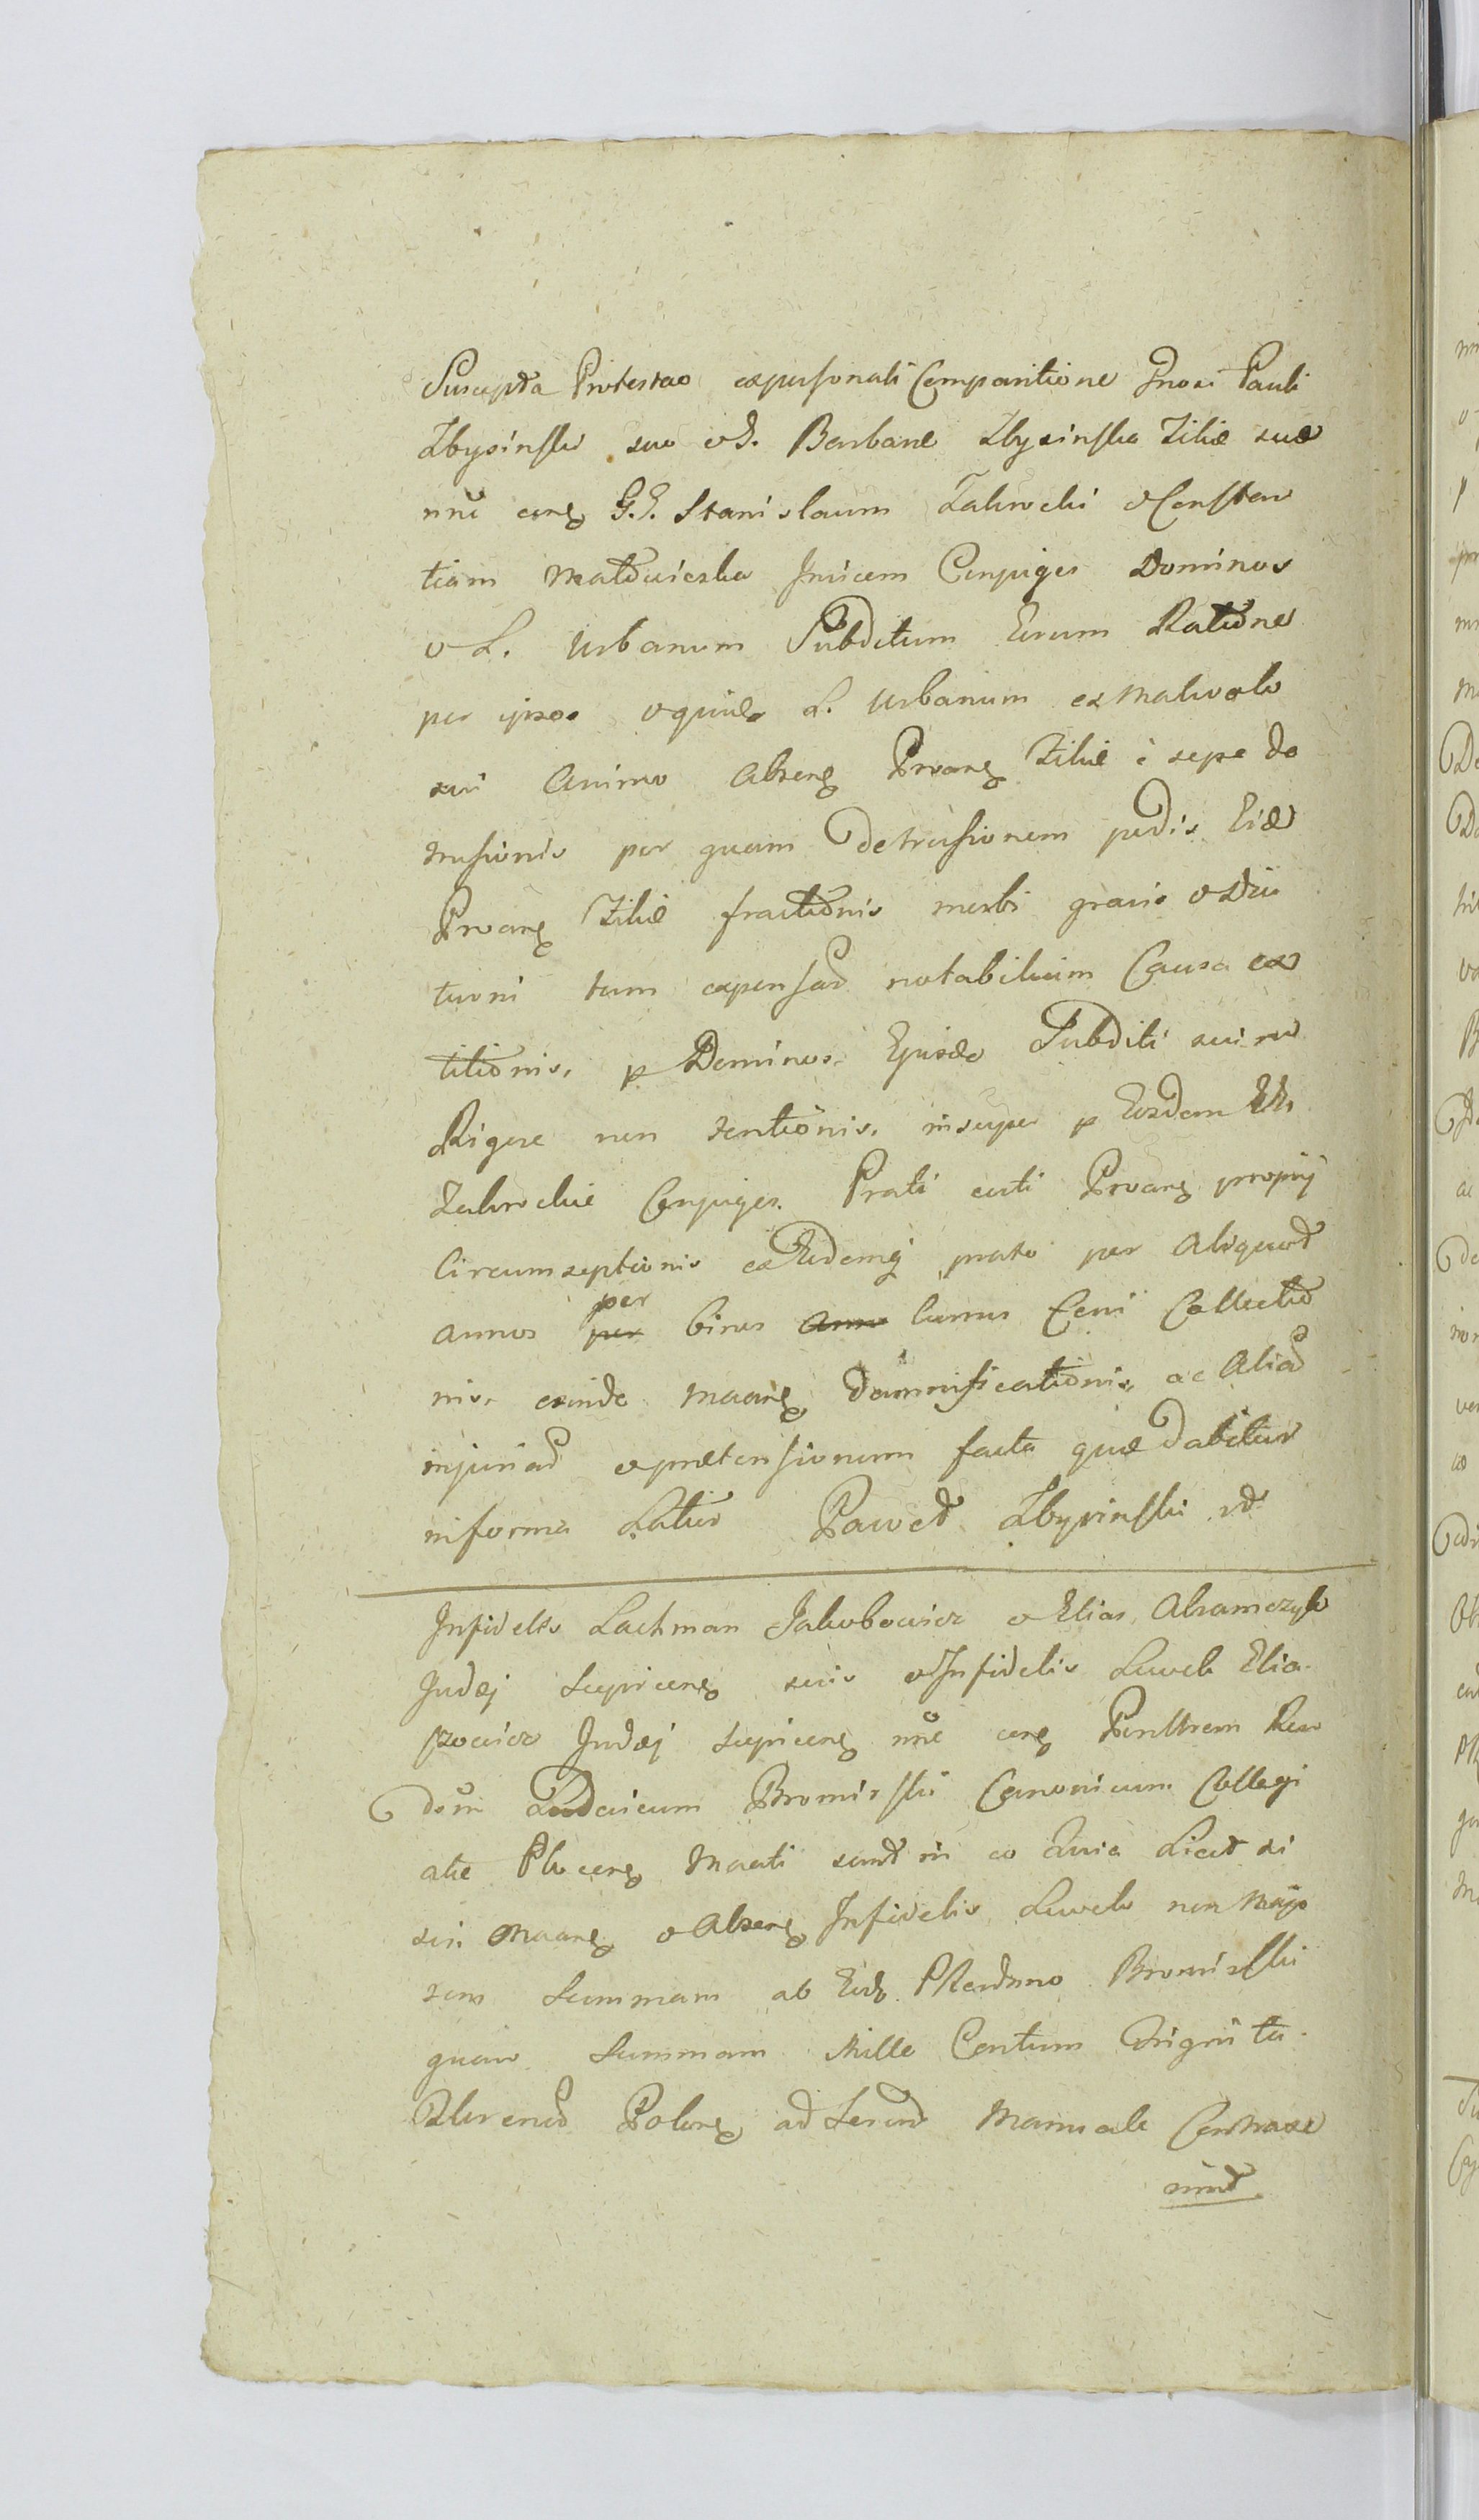 Suscepta Protestao ex personali Comparitione Gnosi Pauli
Zbyzinski suo et G. Barbarae Zbyzinska Filiae suae
nnē crng G.G. Stanislaum Zakrocki et Constan
tiam Matowieska Invicem Conjuges Dominos
et L. Urbanum Subditum Eorum Ratione
per ipsos et quide L. Urbanum ex malevolo
sui Animo Absens Prvang Filiae è sepe de
trusionis per quam Detrusionem pedis Eide
Prvang Filiae fractionis morbi gravis et Diu
turni tum expensar notabilium Causa ex
titionis, p Dominos Ejusde Subditi sui in
Rigore non tentionis, insuper p Eosdem
Zakrockie Conjuges Prati certi Prvang proprij
Circumseptionis ex Eodemq prato per Aliquot
annos per per binos anno currus Feni Collectio
nis, exinde Maang Damnificationis, ac Aliar
injuriar et praetensionum facta quae Dabitur
in forma Latius Paweł Zbyzinski
Infideles Lachman Jakubowicz et Elias Abramczyk
Judaej Sepicens suis et Infidelis Lewek Elia
szowicz Judaej Sepicens nnē crng Perillrem Rew
dum Ludovicum Bromirski Canonicum Collegi
atae Plocens Maati sunt in eo Quia Licet si
sui Maang et Absens Infidelis Lewek non Majo
rem Summam ab Eode PRerdmo Bromirski
quam Summam Mille Centum Triginta
Florenor Polong ad Ferend Manuale Contraxe
runt